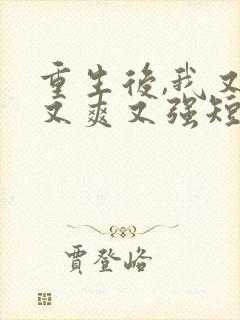 重生後,我又
又爽又强短
賈登峪